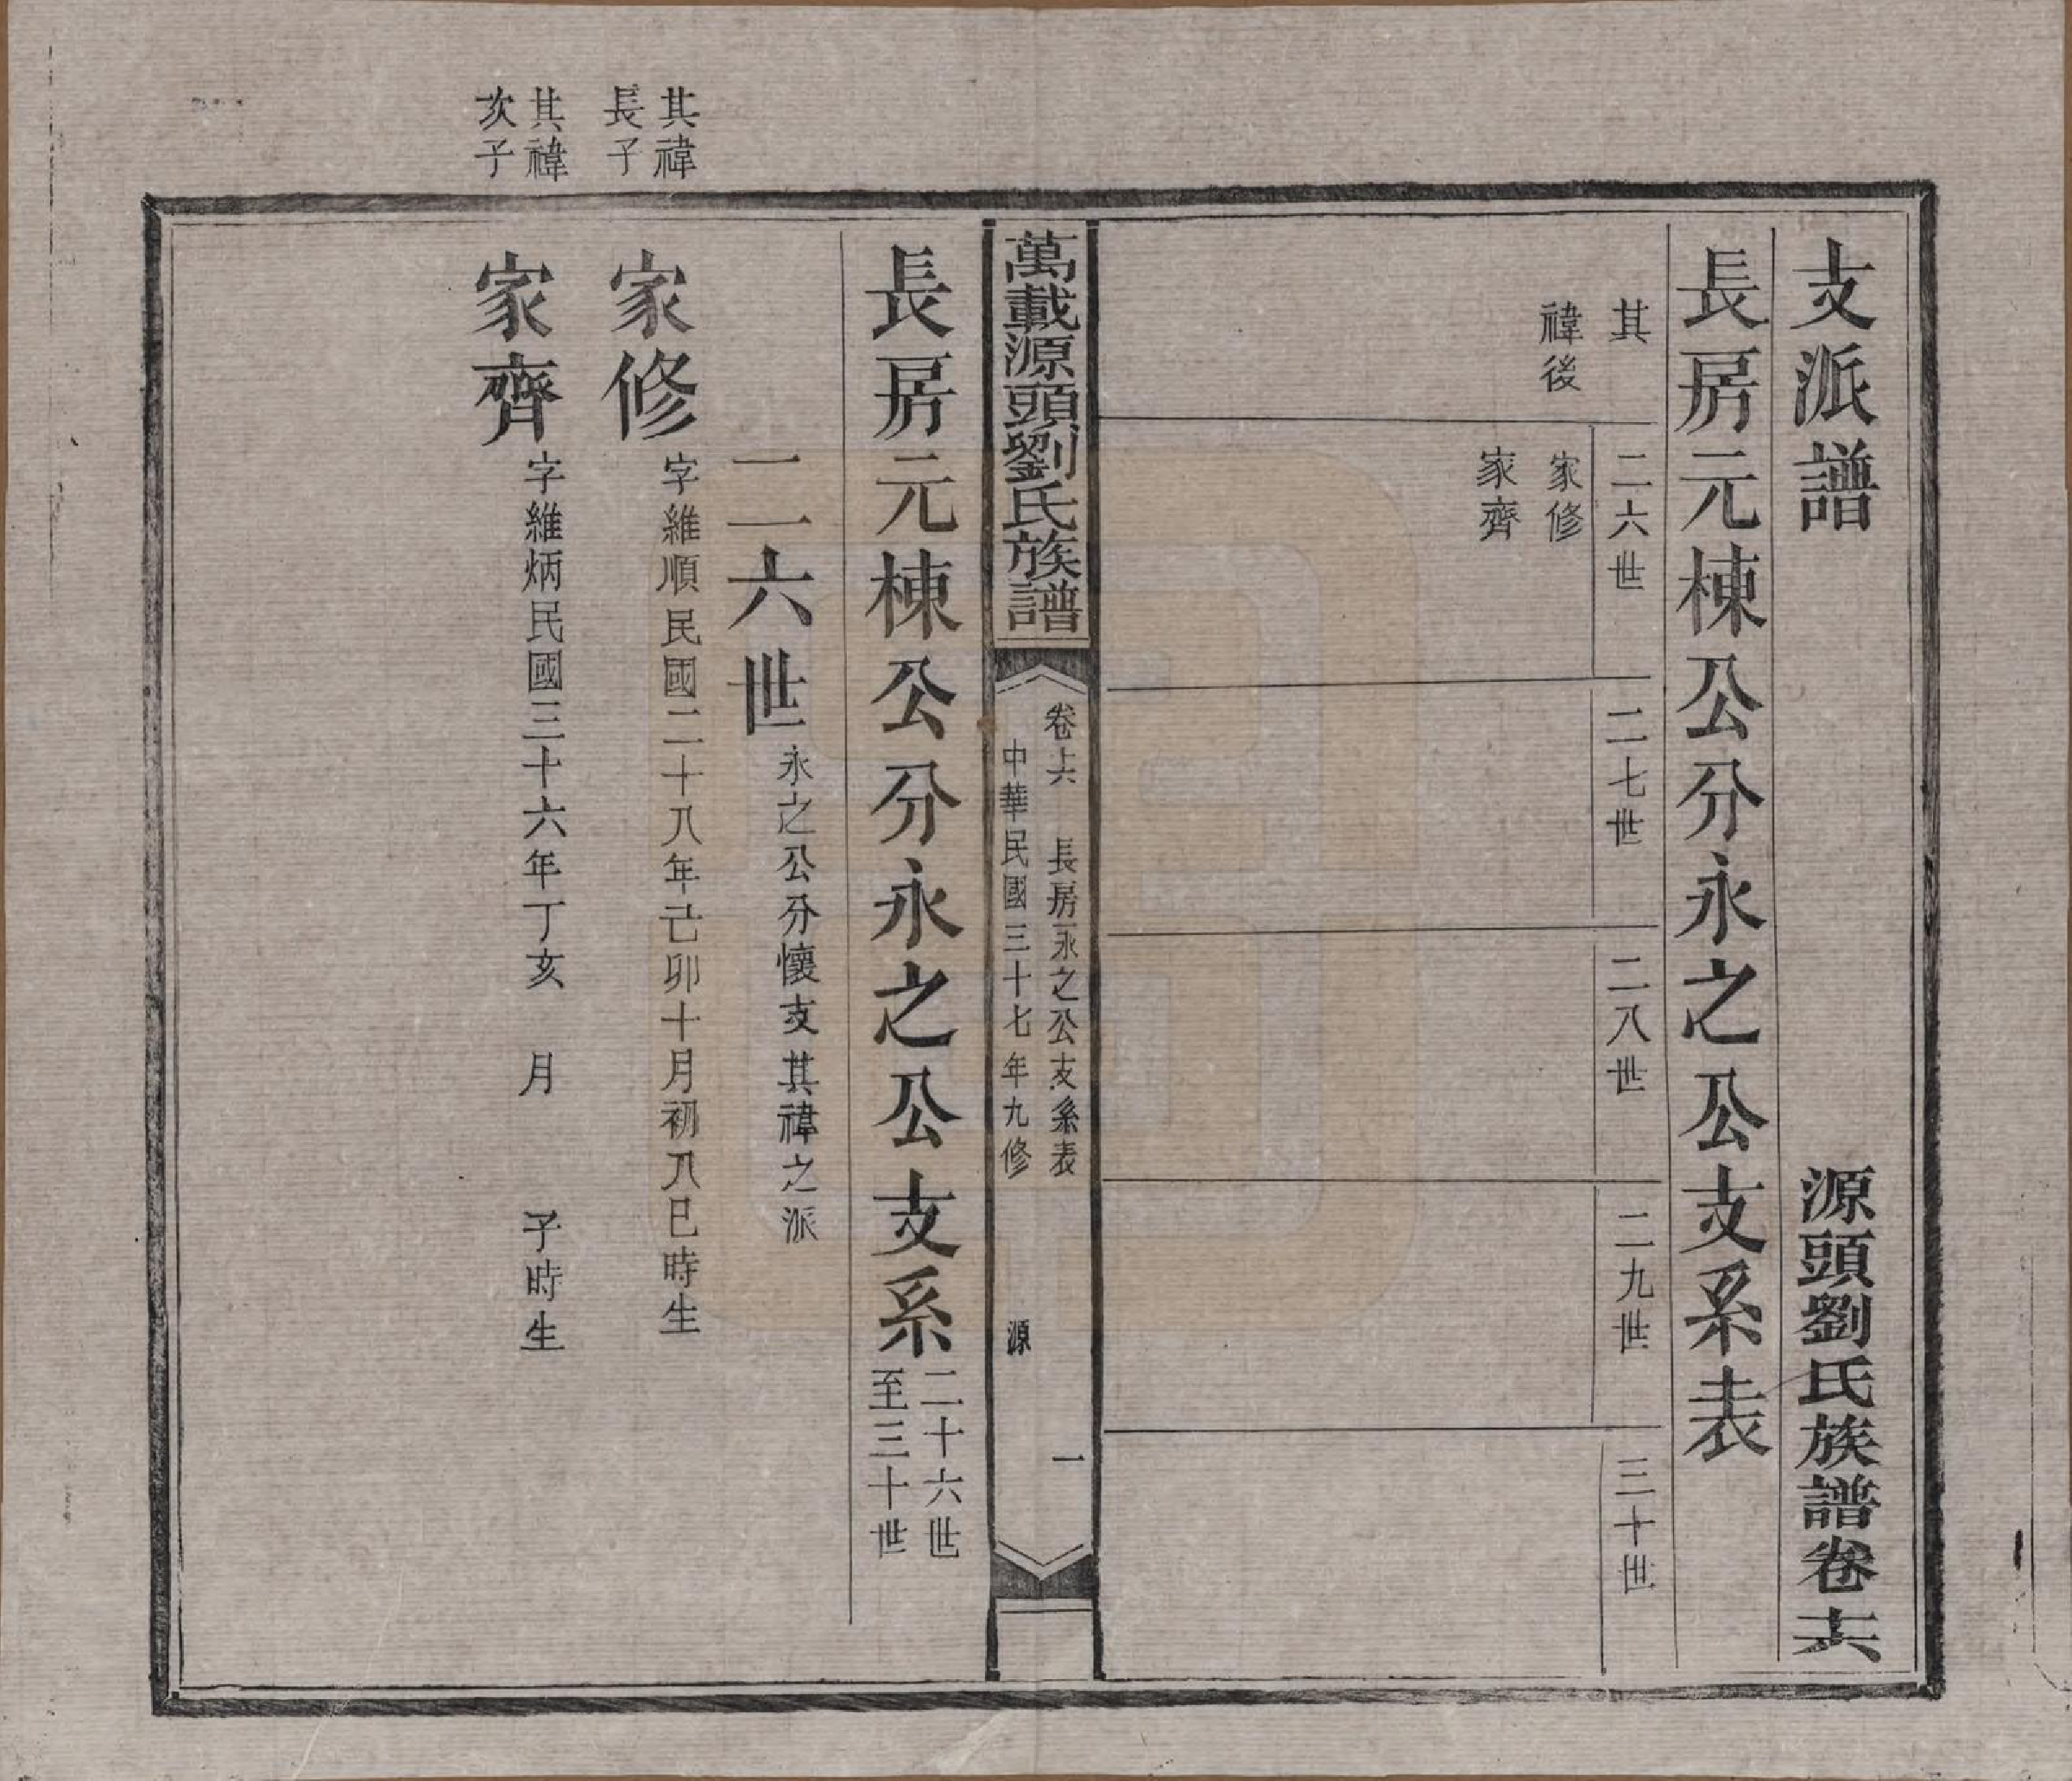 支派譜
源頭劉氏族譜卷十六
長房元棟公分永之公支系表
其
禕後
二六世
家修
家齊
二七世
二八世
二九世
三十世
萬載源頭劉氏族譜
卷十六
長房永之公支系表
一
中華民國三十七年九修
源
長房元棟公分永之公支系
二十六世
至三十世
二六世
永之公分懷支其禕之派
其禕
長子
家修
字維順民國二十八年己卯十月初八巳時生
其禕
次子
家齊
字維炳民國三十六年丁亥 月 子時生